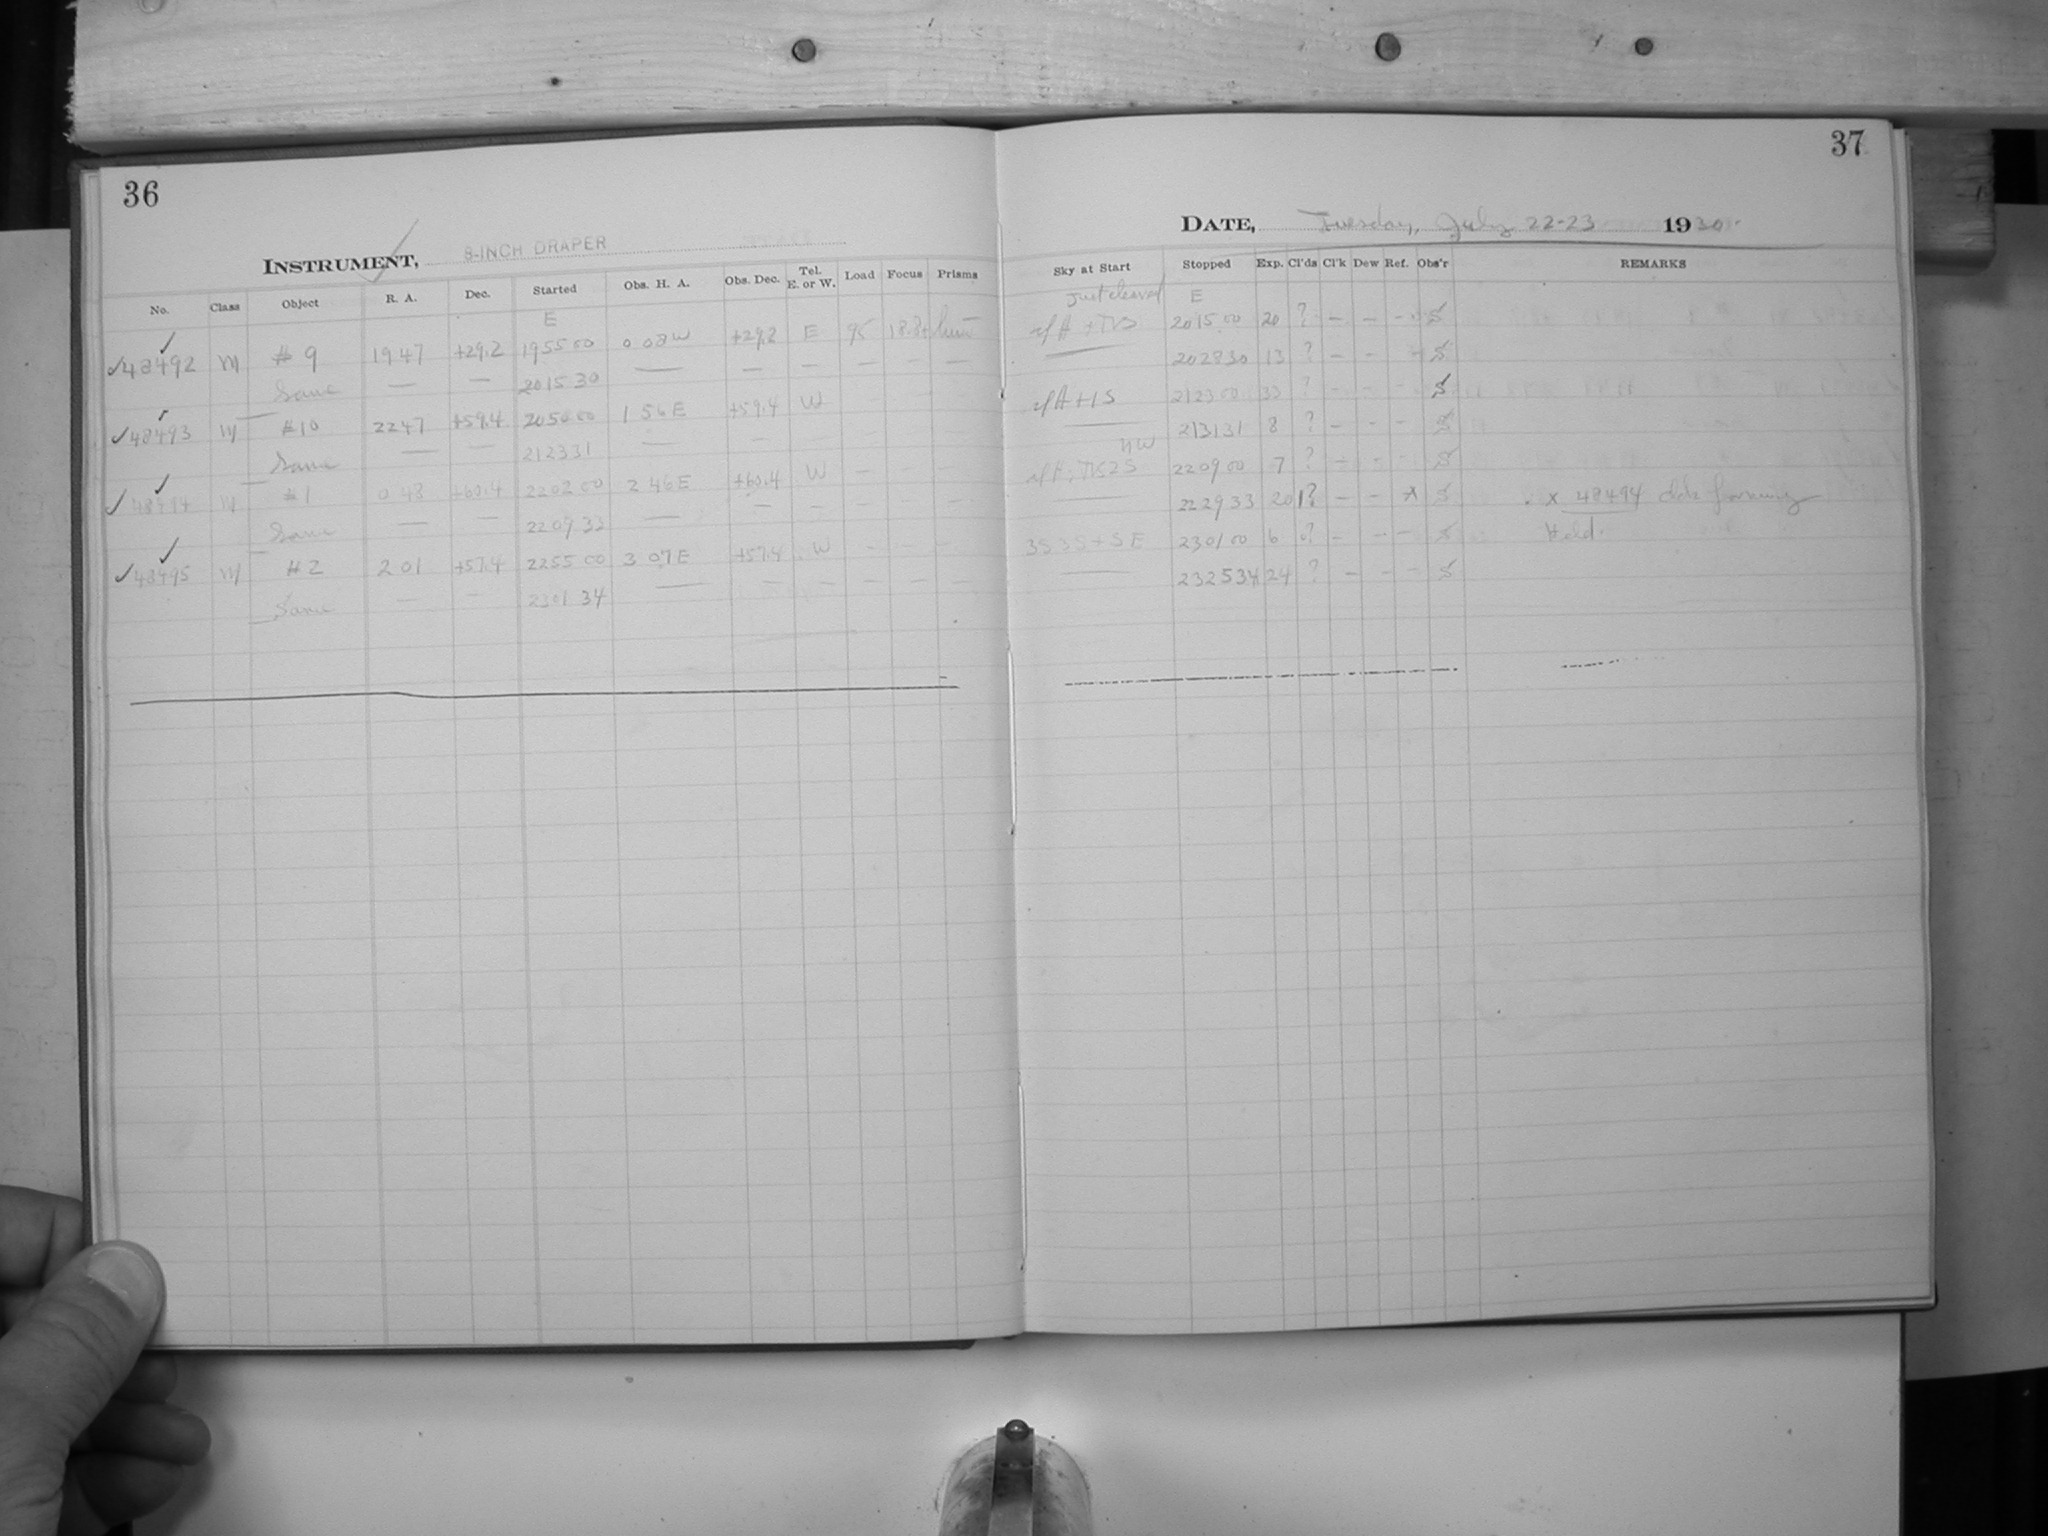 36
INSTRUMENT, 8-INCH DRAPER
No. Class Object R. A. Dec. Started Obs. H. A. Obs. Dec. Tel. E. or W. Load Focus Prisms
E
48492 M #9 19 47 +29.2 19 55 00 0 08 W +29.2 E 95
Same — — 20 15 30 — — — — — —
48493 M #10 22 47 +59.4 20 50 00 1 56 E +59.4 W
Same — — 21 23 31 — —
48494 M #1 0 48 +60.4 22 02 00 2 46 E +60.4 W — — —
Same — — 22 09 33 — — — — — —
48495 M #2 2 01 +57.4 22 55 00 3 07 E +57.4 W — — —
Same — — 23 01 34 — — — — — —
37
DATE, Tuesday, July 22-23 1930.
Sky at Start Stopped Exp. Cl'ds Cl'k Dew Ref. Obs'r REMARKS
just cleared E
20 15 00 20 ? — — — S
20 28 30 13 ? — — — S
21 23 00 33 ? — — — S
21 31 31 8 ? — — — S
NW
22 09 00 7 ? — — — S
22 29 33 20 1? — — x S x 48494
3S 3S + S E 23 01 00 6 ? — — — S
23 25 34 24 ? — — — S